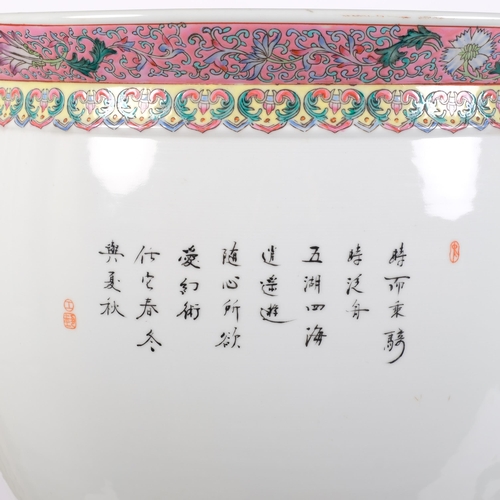 時而乘騎
時泛舟
五湖四海
逍遙遊
隨心所欲
愛幻術
任它春冬
與夏秋